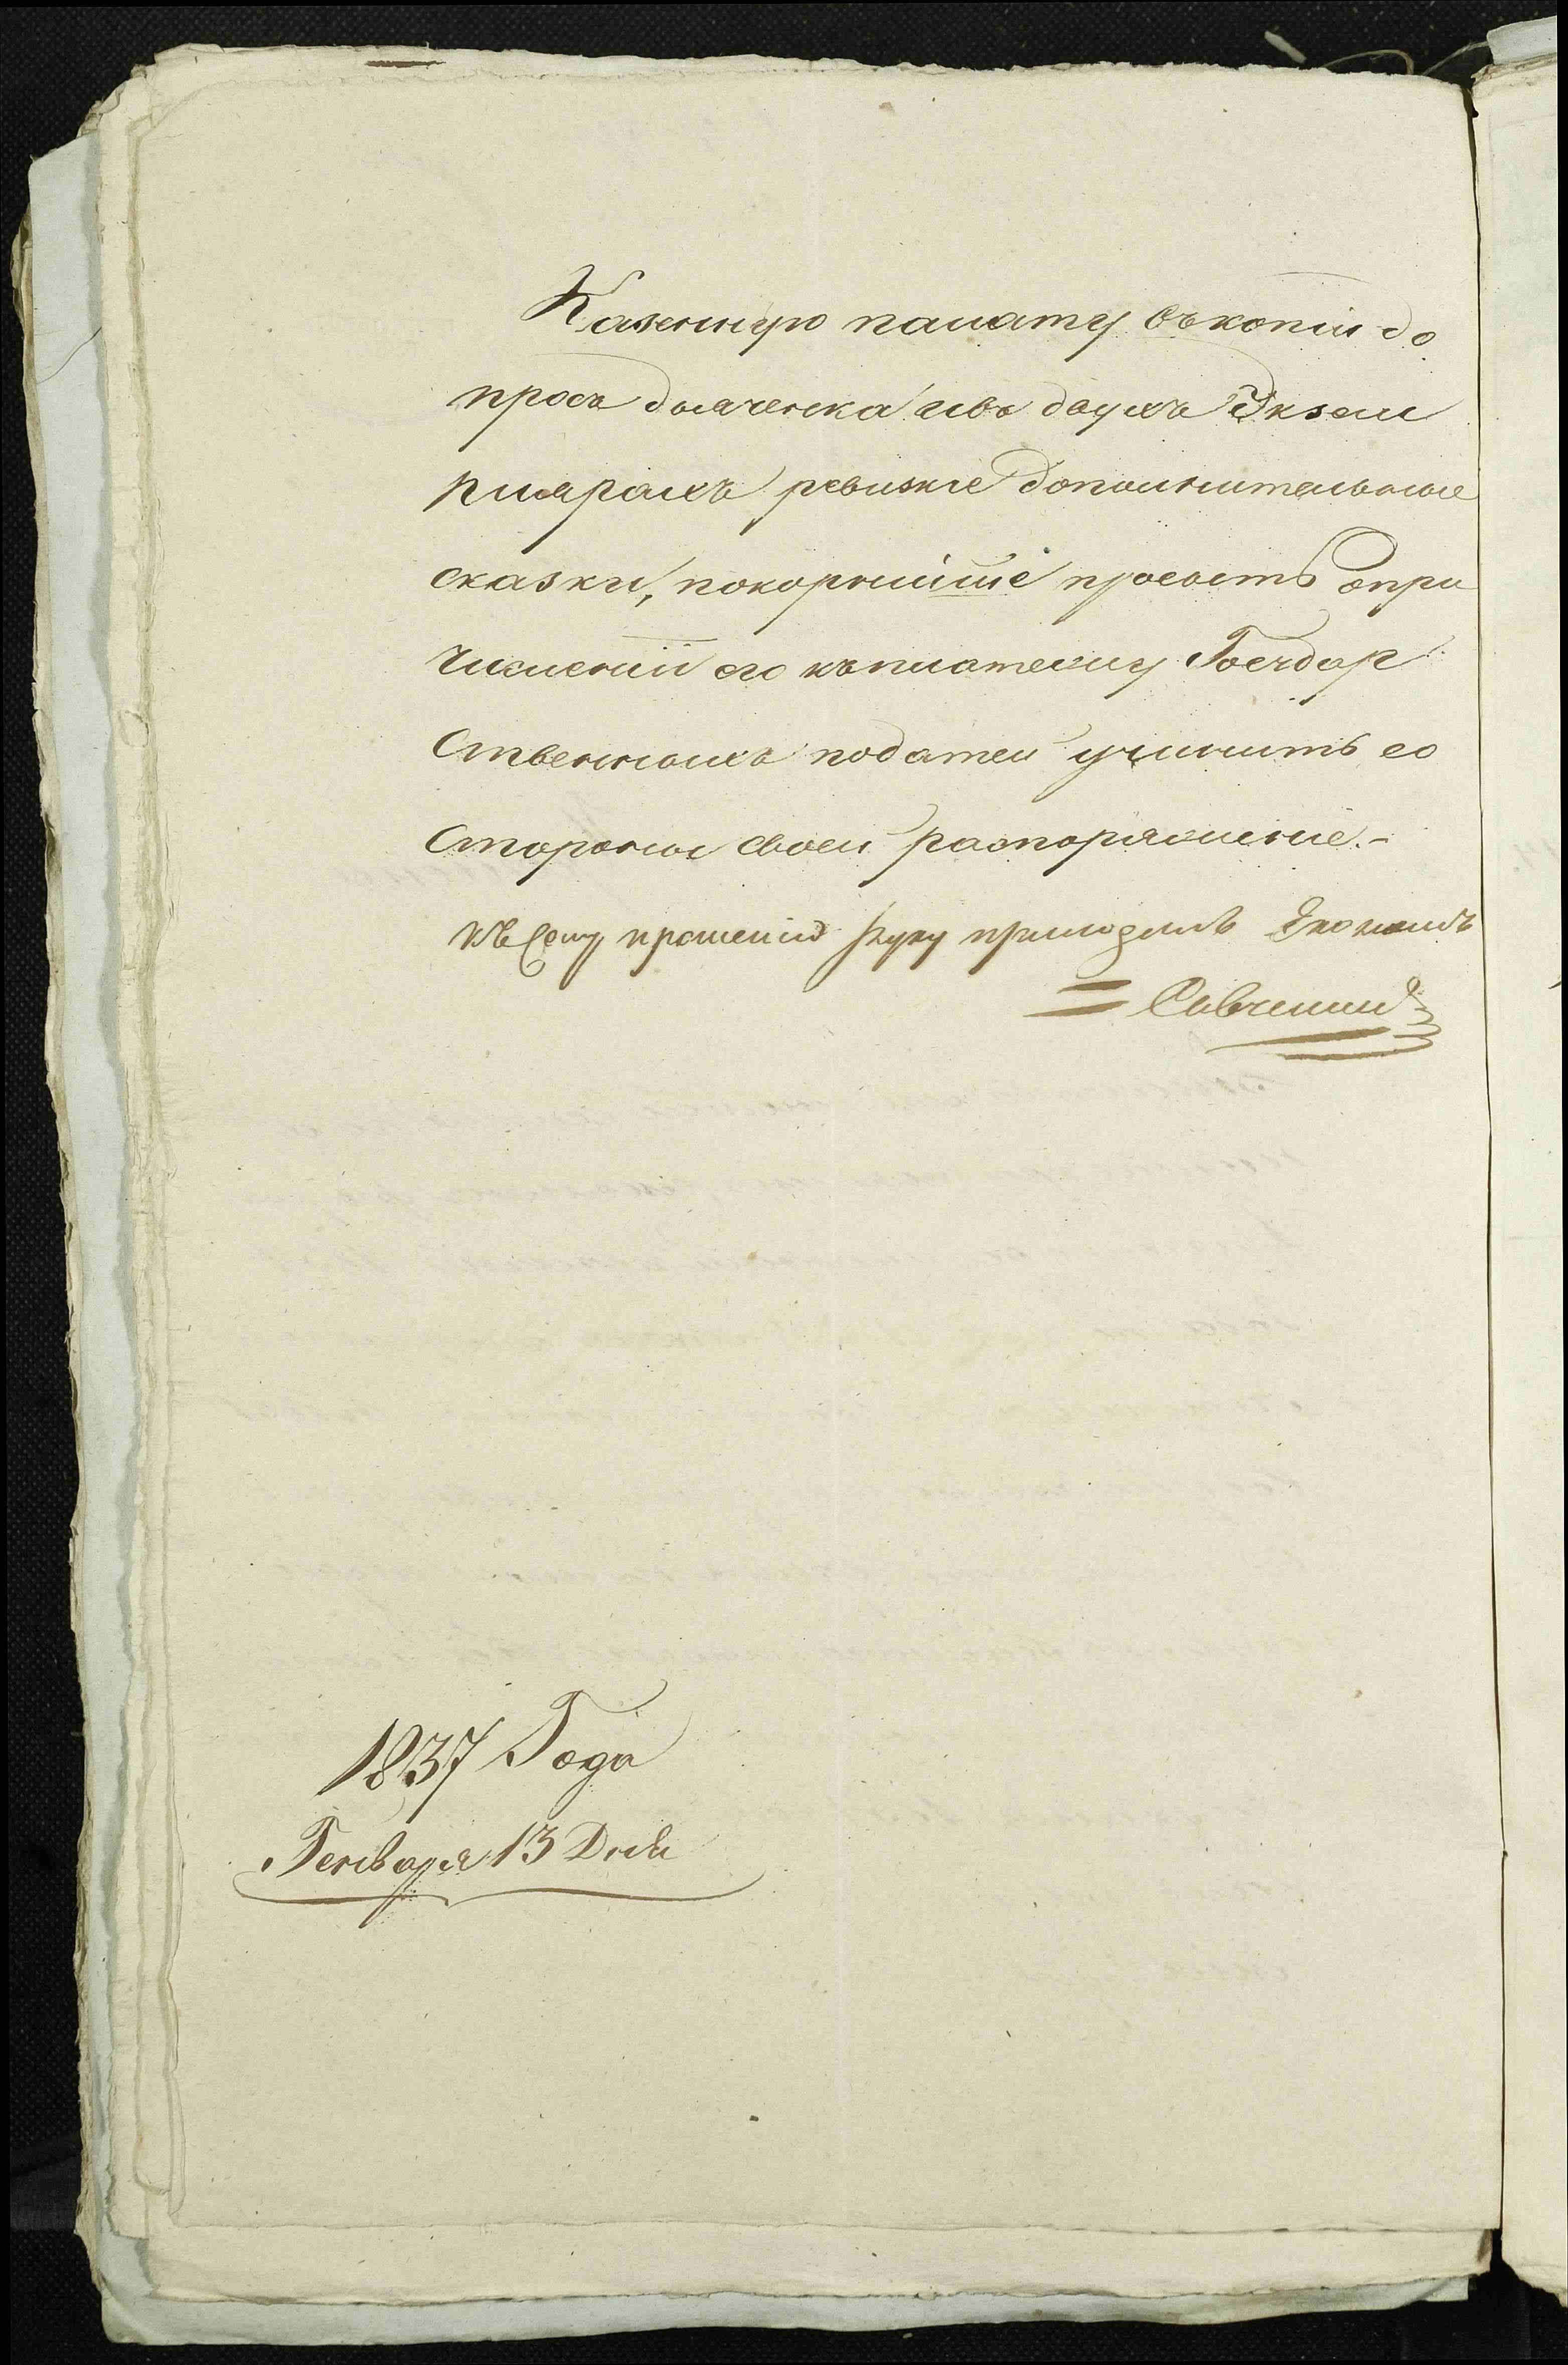 Казенную палату въкопіи до
просъ дьяченка ивъ двухъ Экзем
плярахъ ревизкіе дополнительные
сказки, покорнейше просить опри
численіи его къплатежу Государ
Ственныхъ податей учинить со
Стороны своей распоряженіе.-
Къ Сему прошенію руку приложилъ Экономъ
Савченко
1837 Года
Генваря 13 Дня